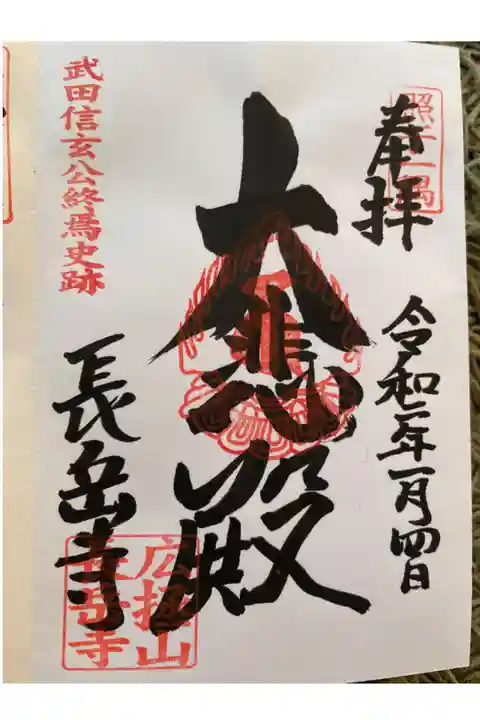 奉拝
照于一隅
令和二年一月四日
大悲殿
武田信玄公終焉史跡
長岳寺
広拯山
長岳寺